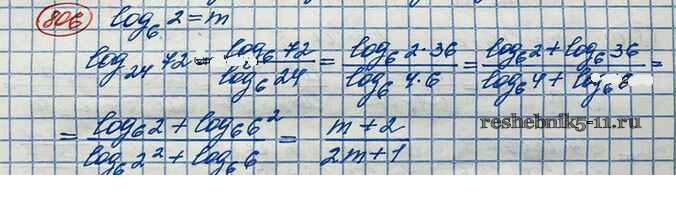 806 log₆ 2 = m
log₂₄ 72 = log₆ 72 / log₆ 24 = log₆ 2·36 / log₆ 4·6 = log₆ 2 + log₆ 36 / log₆ 4 + log₆ 6 =
= log₆ 2 + log₆ 6² / log₆ 2² + log₆ 6 = m + 2 / 2m + 1
reshebnik5-11.ru